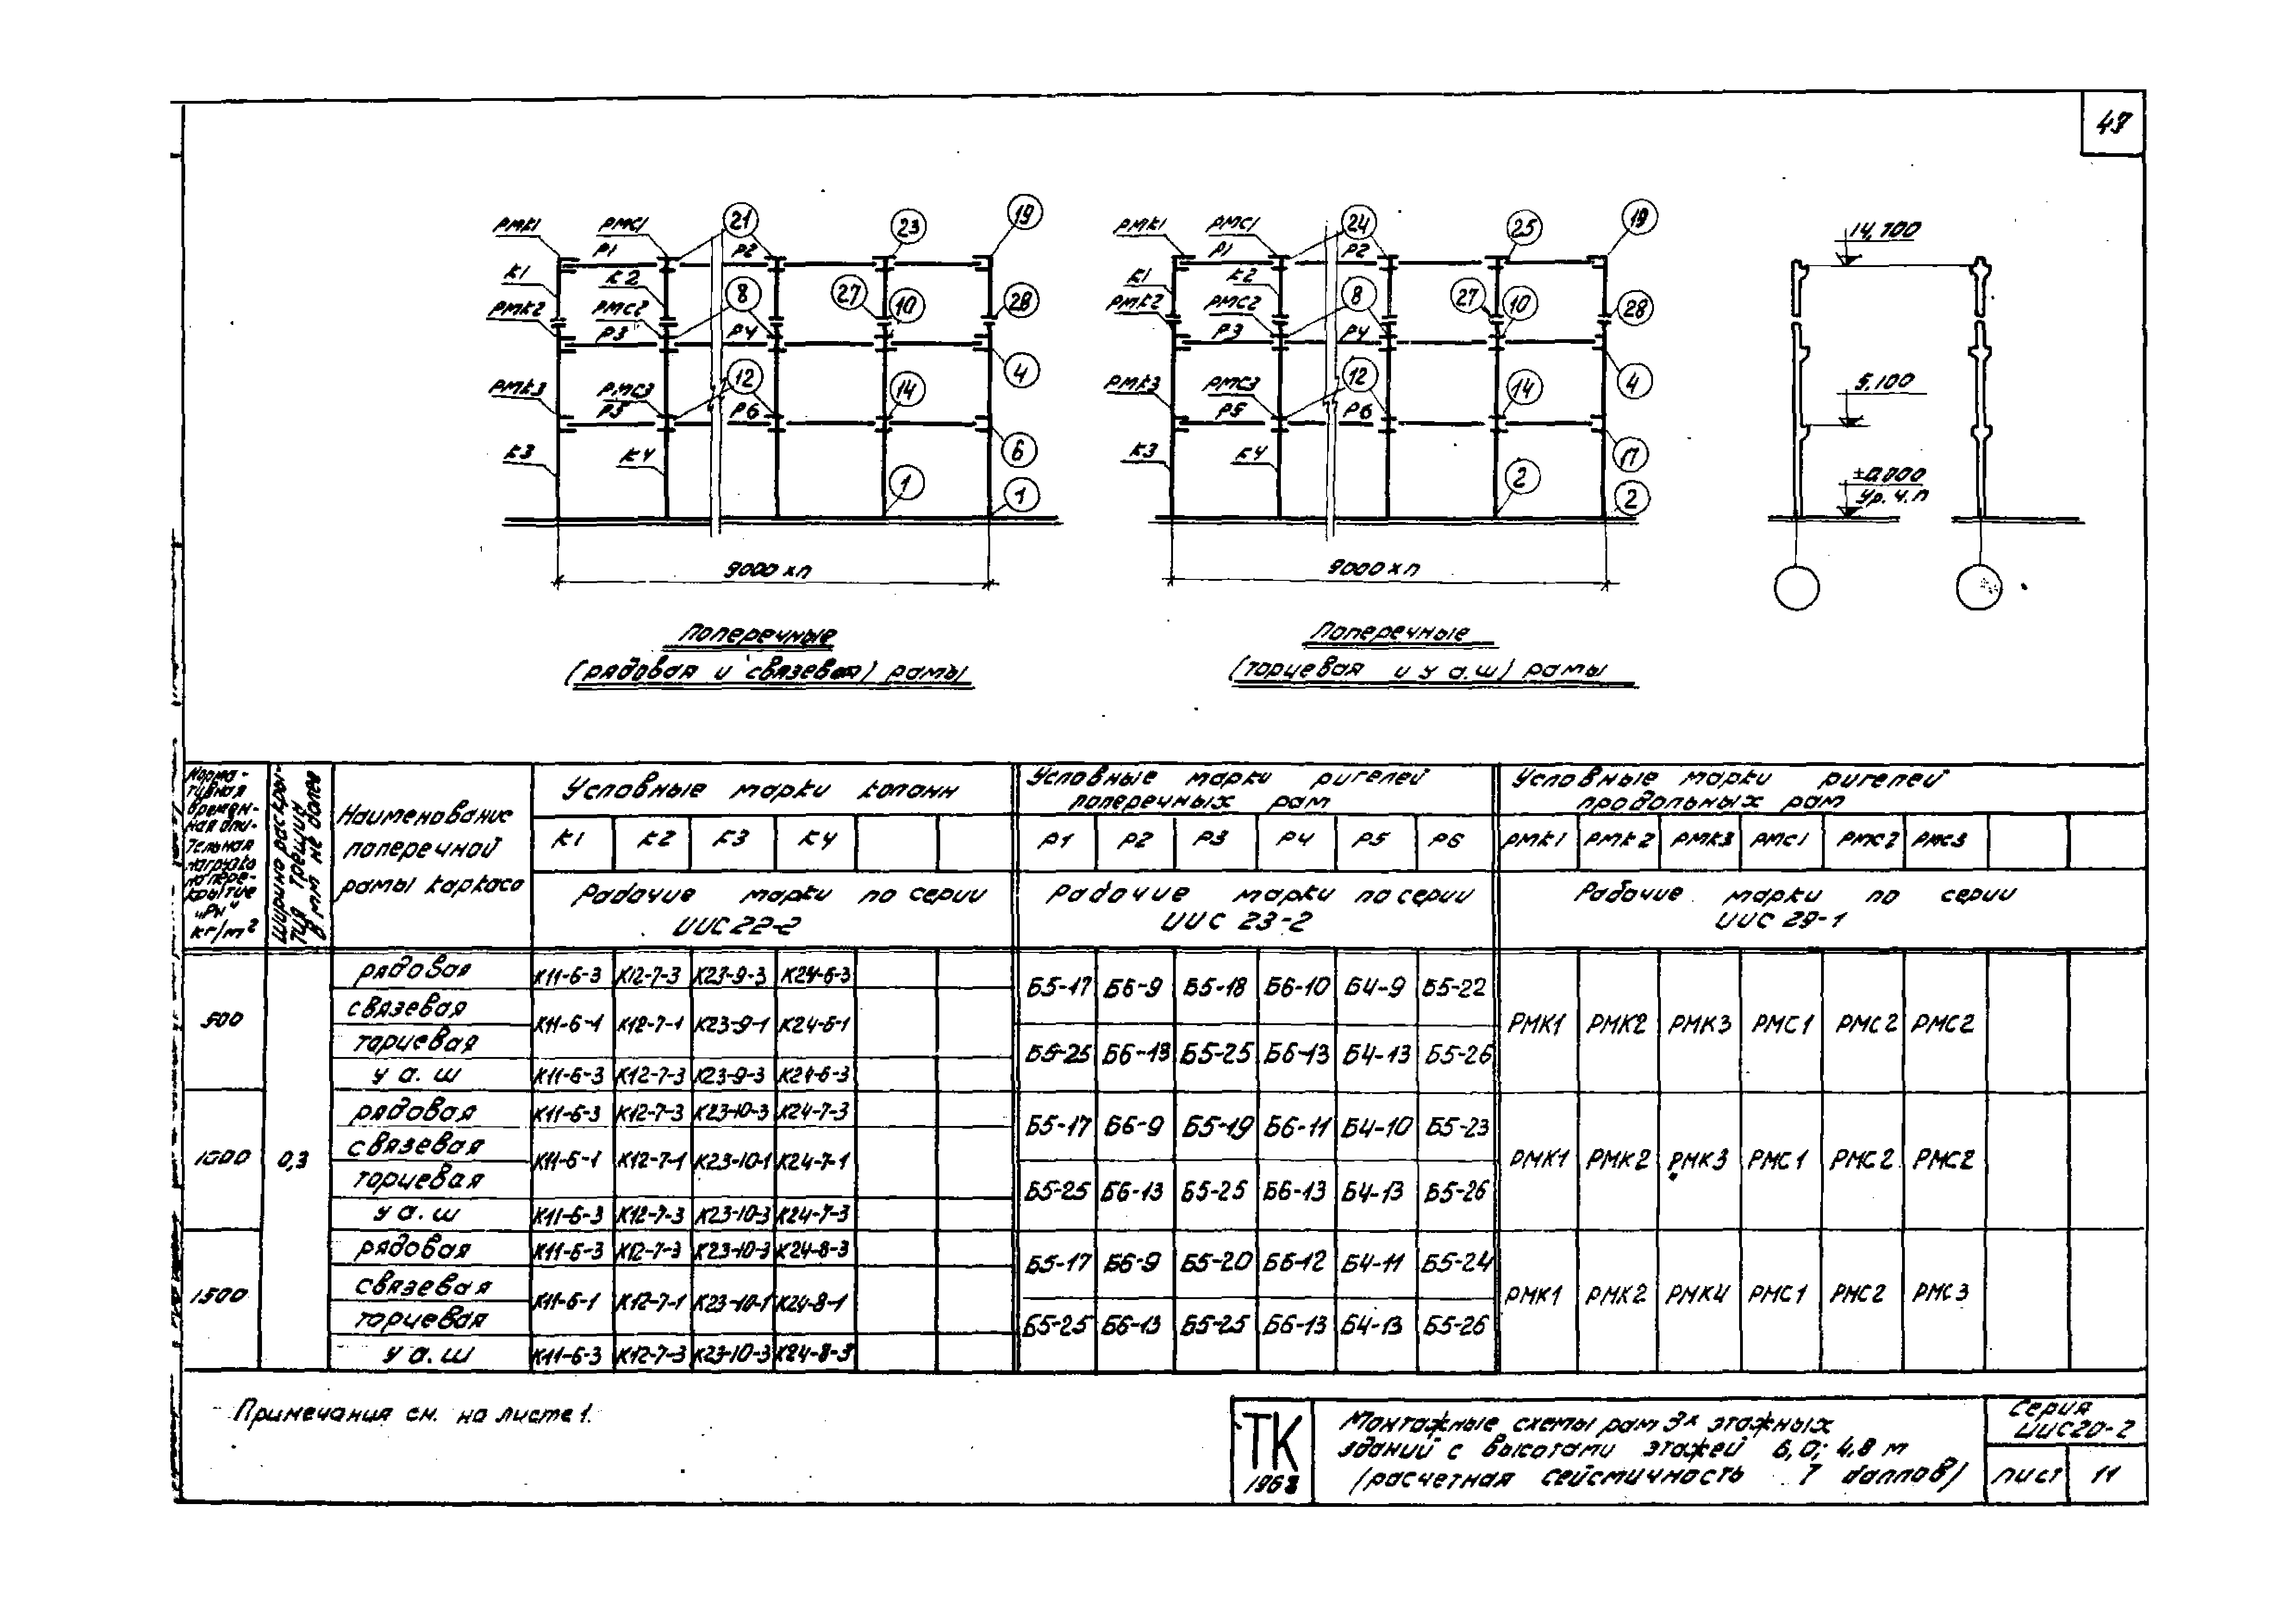 47
РМК1 РМС1 21 23 19
Р1 Р2
К1 К2
РМК2 РМС2 8 27 10 28
Р3 Р4
РМК3 РМС3 12 14 4
Р5 Р6
К3 К4 6
1 1
9000 х п
Поперечные
(рядовая и связевая) рамы
РМК1 РМС1 24 25 19
Р1 Р2
К1 К2
РМК2 РМС2 8 27 10 28
Р3 Р4
РМК3 РМС3 12 14 4
Р5 Р6
К3 К4 17
2 2
9000 х п
Поперечные
(торцевая и у а.ш) рамы
14,700
5,100
±0,000
Ур. ч. п
Норма-
тивная
времен-
ная дли-
тельная
нагрузка
на пере-
крытие
„Рн"
кг/м²
Ширина раскры-
тия трещин
в мм не более
Наименование
поперечной
рамы каркаса
Условные марки колонн
К1 К2 К3 К4
Рабочие марки по серии
ИИС22-2
Условные марки ригелей
поперечных рам
Р1 Р2 Р3 Р4 Р5 Р6
Рабочие марки по серии
ИИС 23-2
Условные марки ригелей
продольных рам
РМК1 РМК2 РМК3 РМС1 РМС2 РМС3
Рабочие марки по серии
ИИС 29-1
500
0,3
рядовая К11-6-3 К12-7-3 К23-9-3 К24-6-3
связевая
торцевая
К11-6-1 К12-7-1 К23-9-1 К24-6-1
у а. ш К11-6-3 К12-7-3 К23-9-3 К24-6-3
Б5-17 Б6-9 Б5-18 Б6-10 Б4-9 Б5-22
Б5-25 Б6-13 Б5-25 Б6-13 Б4-13 Б5-26
РМК1 РМК2 РМК3 РМС1 РМС2 РМС2
1000
рядовая К11-6-3 К12-7-3 К23-10-3 К24-7-3
связевая
торцевая
К11-6-1 К12-7-1 К23-10-1 К24-7-1
у а. ш К11-6-3 К12-7-3 К23-10-3 К24-7-3
Б5-17 Б6-9 Б5-19 Б6-11 Б4-10 Б5-23
Б5-25 Б6-13 Б5-25 Б6-13 Б4-13 Б5-26
РМК1 РМК2 РМК3 РМС1 РМС2 РМС2
1500
рядовая К11-6-3 К12-7-3 К23-10-3 К24-8-3
связевая
торцевая
К11-6-1 К12-7-1 К23-10-1 К24-8-1
у а. ш К11-6-3 К12-7-3 К23-10-3 К24-8-3
Б5-17 Б6-9 Б5-20 Б6-12 Б4-11 Б5-24
Б5-25 Б6-13 Б5-25 Б6-13 Б4-13 Б5-26
РМК1 РМК2 РМК4 РМС1 РМС2 РМС3
Примечания см. на листе 1.
ТК
1968
Монтажные схемы рам 3х этажных
зданий с высотами этажей 6,0; 4,8 м
(расчетная сейсмичность 7 баллов)
Серия
ИИС20-2
лист 11